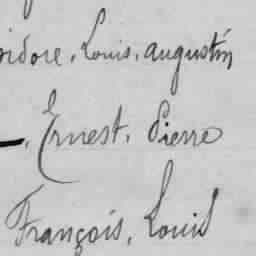 isidore, Louis, augustin
Ernest, Pierre
François, Louis